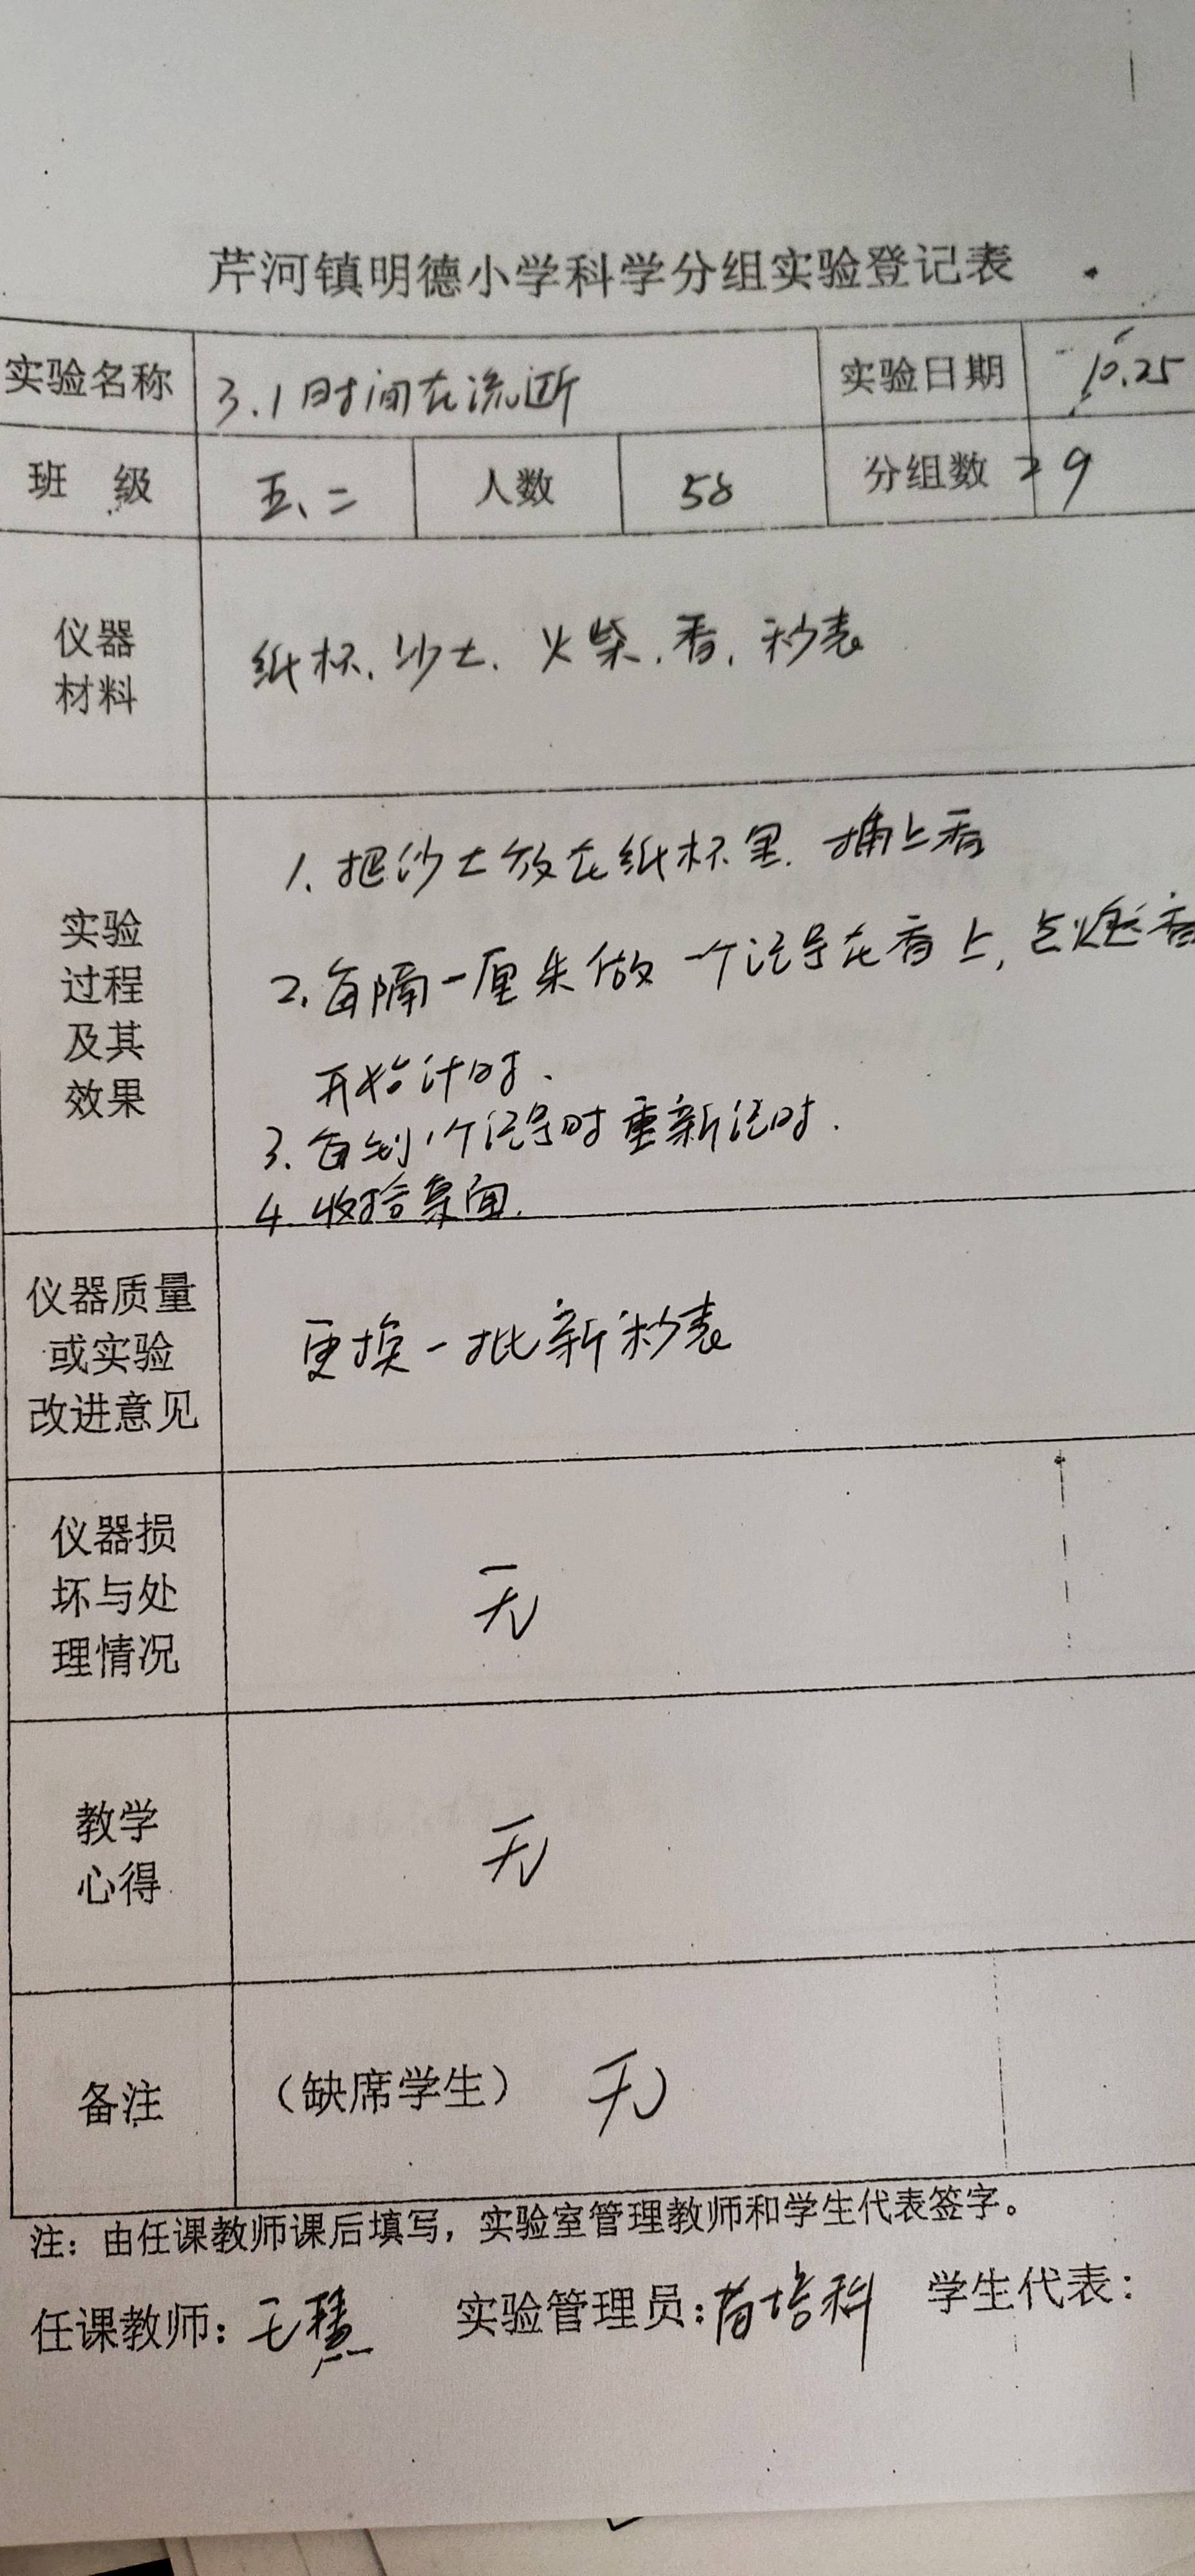 芹河镇明德小学科学分组实验登记表
实验名称 3.1时间在流逝 实验日期 10.25
班级 五、二 人数 58 分组数 9
仪器
材料
纸杯、沙土、火柴、香、秒表
实验
过程
及其
效果
1、把沙土放在纸杯里、插上香
2、每隔一厘米做一个记号在香上,点燃香
开始计时、
3、每到1个记号时重新记时.
4、收拾桌面.
仪器质量
或实验
改进意见
更换一批新秒表
仪器损
坏与处
理情况
无
教学
心得
无
备注 (缺席学生) 无
注:由任课教师课后填写,实验室管理教师和学生代表签字。
任课教师: 实验管理员: 学生代表: